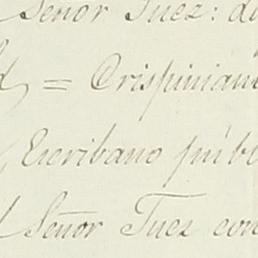 Señor Juez: d
= Crispinian
Escribano públ
Señor Juez con